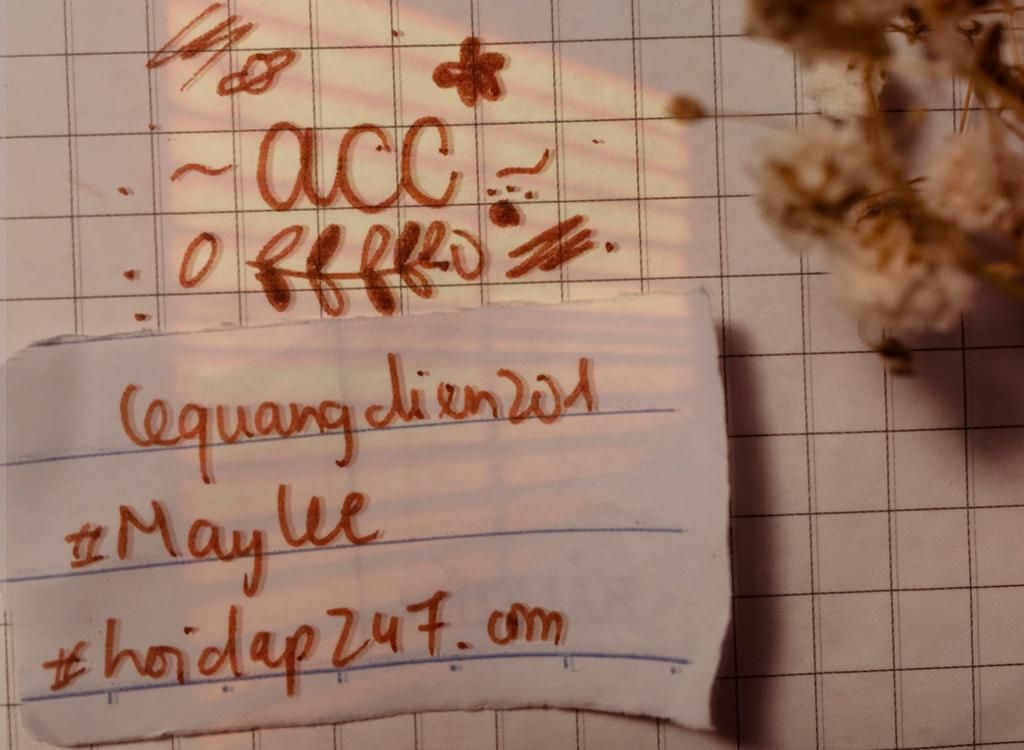 acc
lequangdien201
#May lee
#hoidap247.com